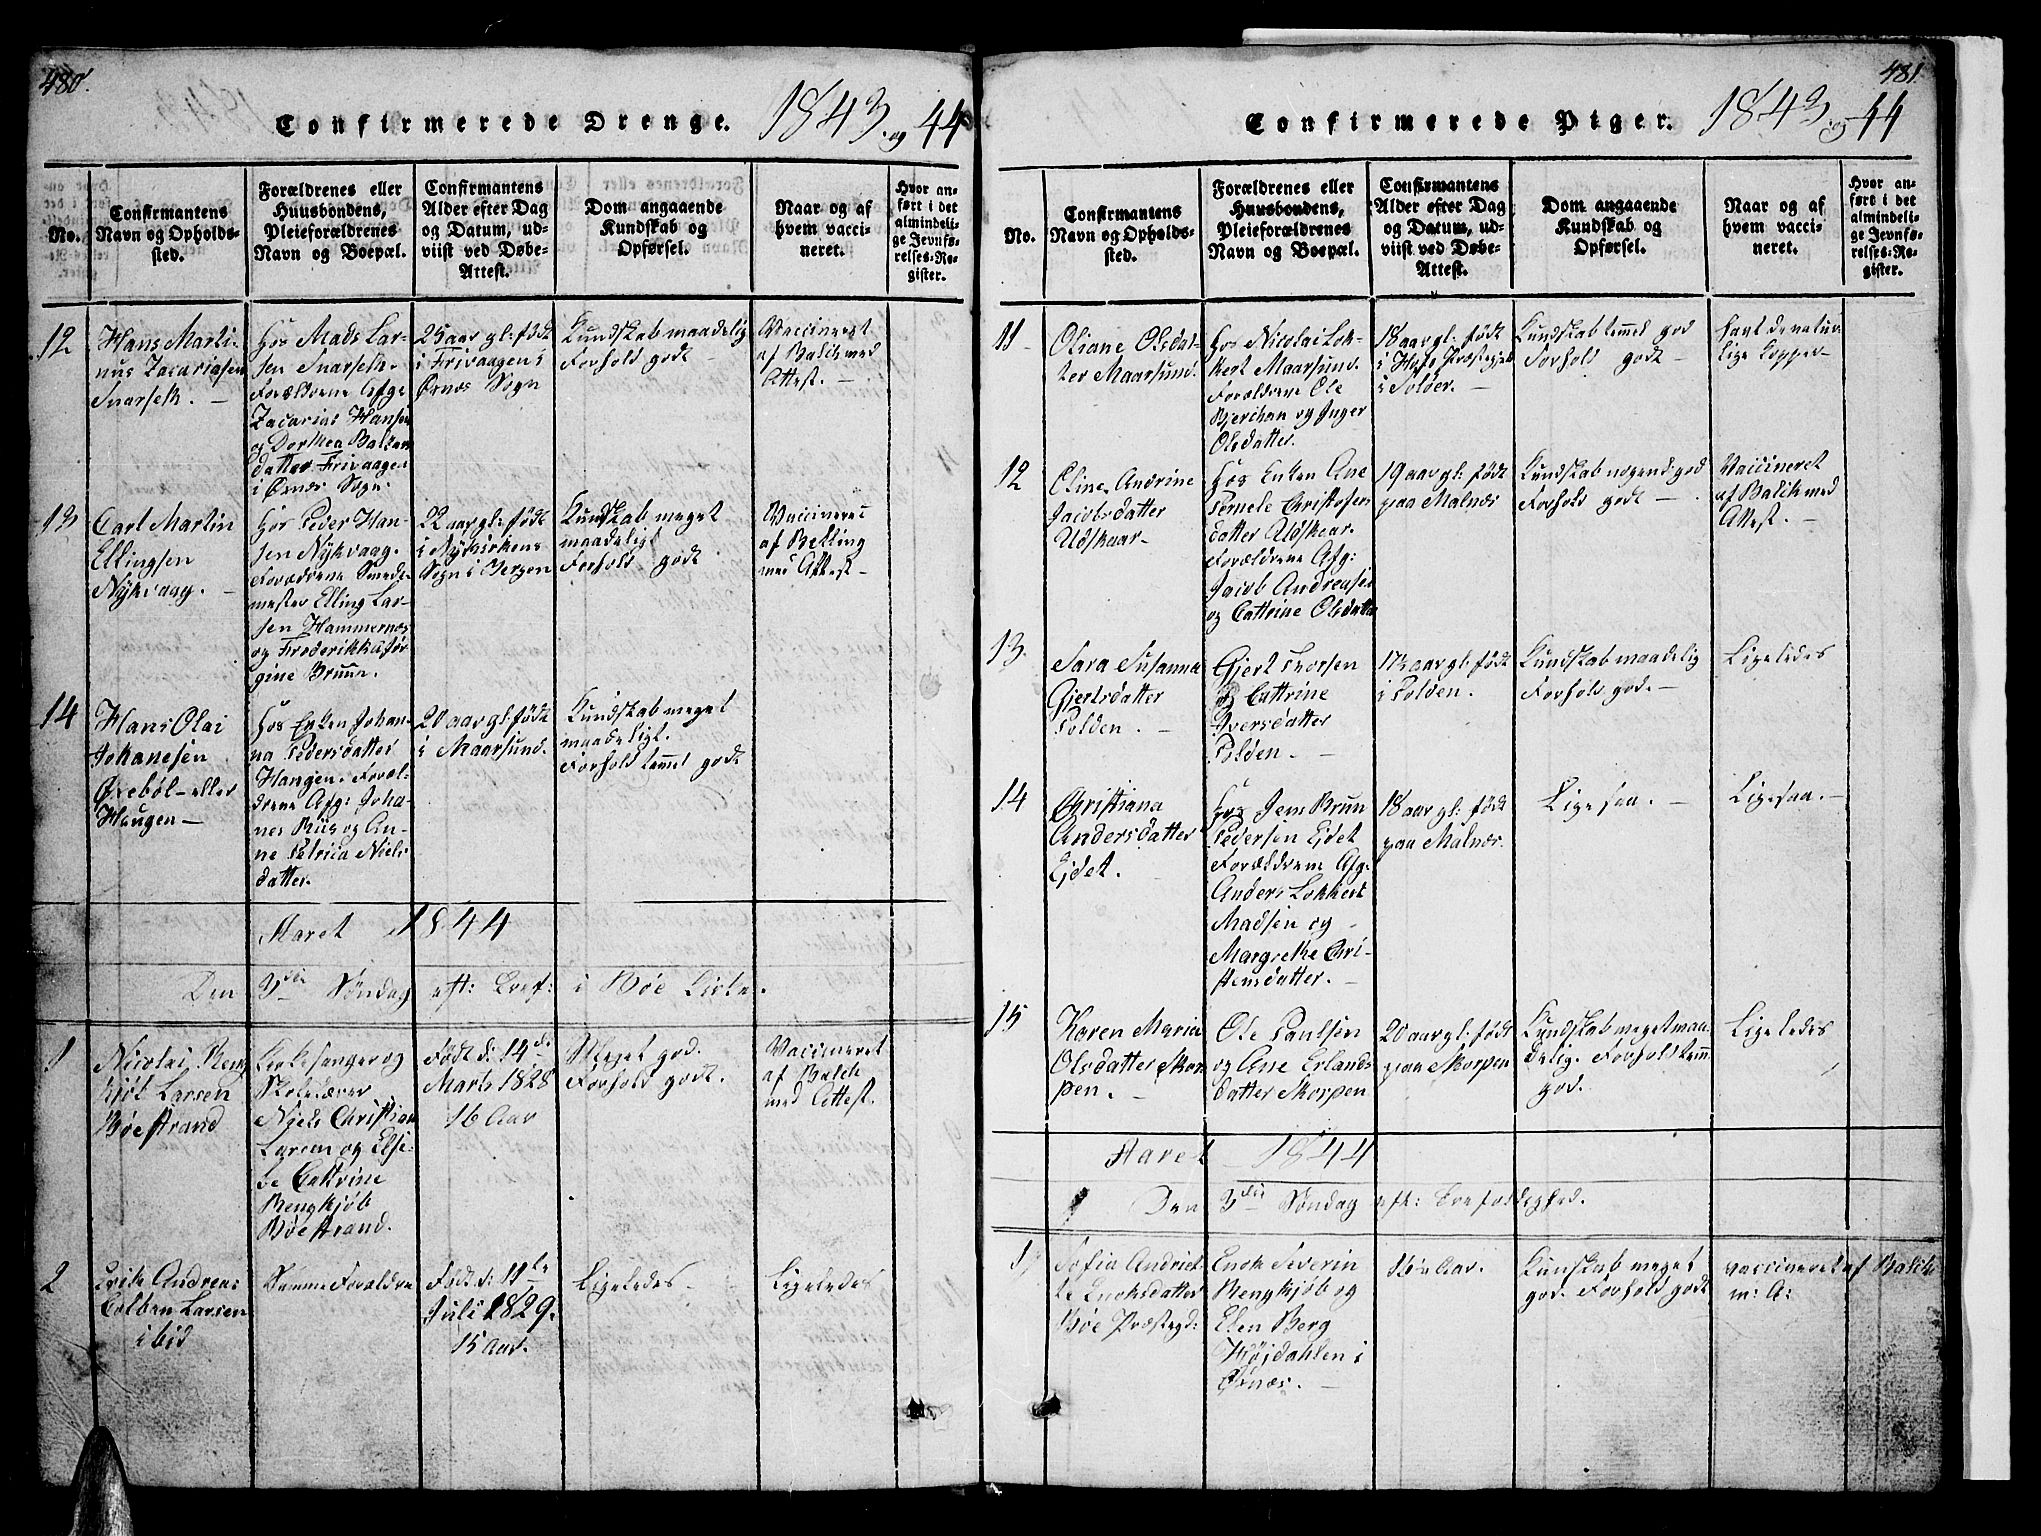 480.
Confirmerede Drenge. 1843 og 44
No.
Confirmantens
Navn og Opholds-
sted.
Forældrenes eller
Huusbondens,
Pleieforældrenes
Navn og Boepæl.
Confirmantens
Alder efter Dag
og Datum, ud-
viist ved Døbe-
Attest.
Dom angaaende
Kundskab og
Opførsel.
Naar og af
hvem vacci-
neret.
Hvor an-
ført i det
almindeli-
ge Jevnfø-
relses-Re-
gister.
12
Hans Marti-
nus Zacariasen
Snarseth. –
Hos Mads Lar-
sen Snarseth.
Forældrene Afg:
Zacarias Hansen
og Dorthea Baltzers
datter Frivaagen
i Øsnæs Sogn.
25 aar gl: født
i Frivaagen i
Øsnæs Sogn
Kundskab maadelig
Forhold godt –
Vaccineret
af Balch med
Attest. –
13
Carl Martin
Ellingsen
Nykvaag. –
Hos Peder Han-
sen Nykvaag.
Forældrene Smede-
mester Elling Lar-
sen Hammernæs
og Frederikka Jør
gine Bruun.
22 aar gl: født
i Nykirkens
Sogn i Bergen
Kundskab meget
maadeligt
Forhold godt
Vaccineret
af Belling
med Attest –
14
Hans Olai
Johanesen
Ørebøl – eller
Haugen –
Hos Enken Johan-
na Pedersdatter
Haugen. Foræl-
drene Afg: Joha-
nes Riis og An-
ne Petrica Niels
datter.
20 aar gl: født
i Maarsund.
Kundskab meget
maadeligt.
Forhold temmel godt
Aaret 1844
Den 3die Søndag eft: Tref: i Bøe Kirke.
1
Nicolai Reng
kjøb Larsen
Bøestrand
Kirkesanger og
Skolelærer
Niels Christian
Larsen og Else-
be Cathrine
Rengkjøb
Bøestrand.
Født d: 14de
Marts 1828
16 Aar
Meget god.
Forhold godt.
Vaccineret
af Balch
med Attest.
2
Erik Andreas
Colban Larsen
ibid
Samme Forældre
Født d: 11te
Juli 1829.
15 Aar.
Ligeledes
Ligeledes
481.
Confirmerede Piger. 1843 og 44
No.
Confirmantens
Navn og Opholds-
sted.
Forældrenes eller
Huusbondens,
Pleieforældrenes
Navn og Boepæl.
Confirmantens
Alder efter Dag
og Datum, ud-
viist ved Døbe-
Attest.
Dom angaaende
Kundskab og
Opførsel.
Naar og af
hvem vacci-
neret.
Hvor an-
ført i det
almindeli-
ge Jevnfø-
relses-Re-
gister.
11
Oliane Olsdat-
ter Maarsund.
Hos Nicolai Lok-
kert Maarsund.
Forældrene Ole
Bjerchan og Inger
Olsdatter.
18 aar gl: født
i Hofs Præstegield
i Soløer. –
Kundskab temmel god
Forhold godt –
havt de natur-
lige Kopper –
12
Eline Andrine
Jacobsdatter
Udskaar –
Hos Enken Ane
Pernele Christofers
datter Udskaar.
Forældrene Afg:
Jacob Andreasen
og Cathrine Olsdatter
19 aar gl: født
paa Malnæs
Kundskab nogenl: god
Forhold godt –
Vaccineret
af Balch med
Attest. –
13.
Sara Susanna
Gjertsdatter
Polden. –
Gjert Thorsen
og Cathrine
Iversdatter
Polden. –
17½ aar gl: født
i Polden.
Kundskab maadelig
Forhold god. –
Ligeledes
14
Christiana
Andersdatter
Eidet.
Hos Jens Brun
Pedersen Eidet
Forældrene Afg:
Anders Lokkert
Madsen og
Margrethe Chri-
stensdatter. –
18 aar gl: født
paa Malnæs.
Ligesaa. –
Ligesaa. –
15
Karen Maria
Olsdatter Skor-
pen. –
Ole Paulsen
og Ane Erlands
datter Skorpen
20 aar gl: født
paa Skorpen
Kundskab meget maa-
delig. Forhold temm.
god.
Ligeledes
Aaret 1844
Den 3die Søndag eft: Trefoldighed.
1.
Sofia Andriet
te Enoksdatter
Bøe Præstegd:
Enok Severin
Rengkjøb og
Elen Berg
Højdahlen i
Øsnæs. –
16½ Aar.
Kunskab meget
god. Forhold godt
vaccineret af Balch
m: A: